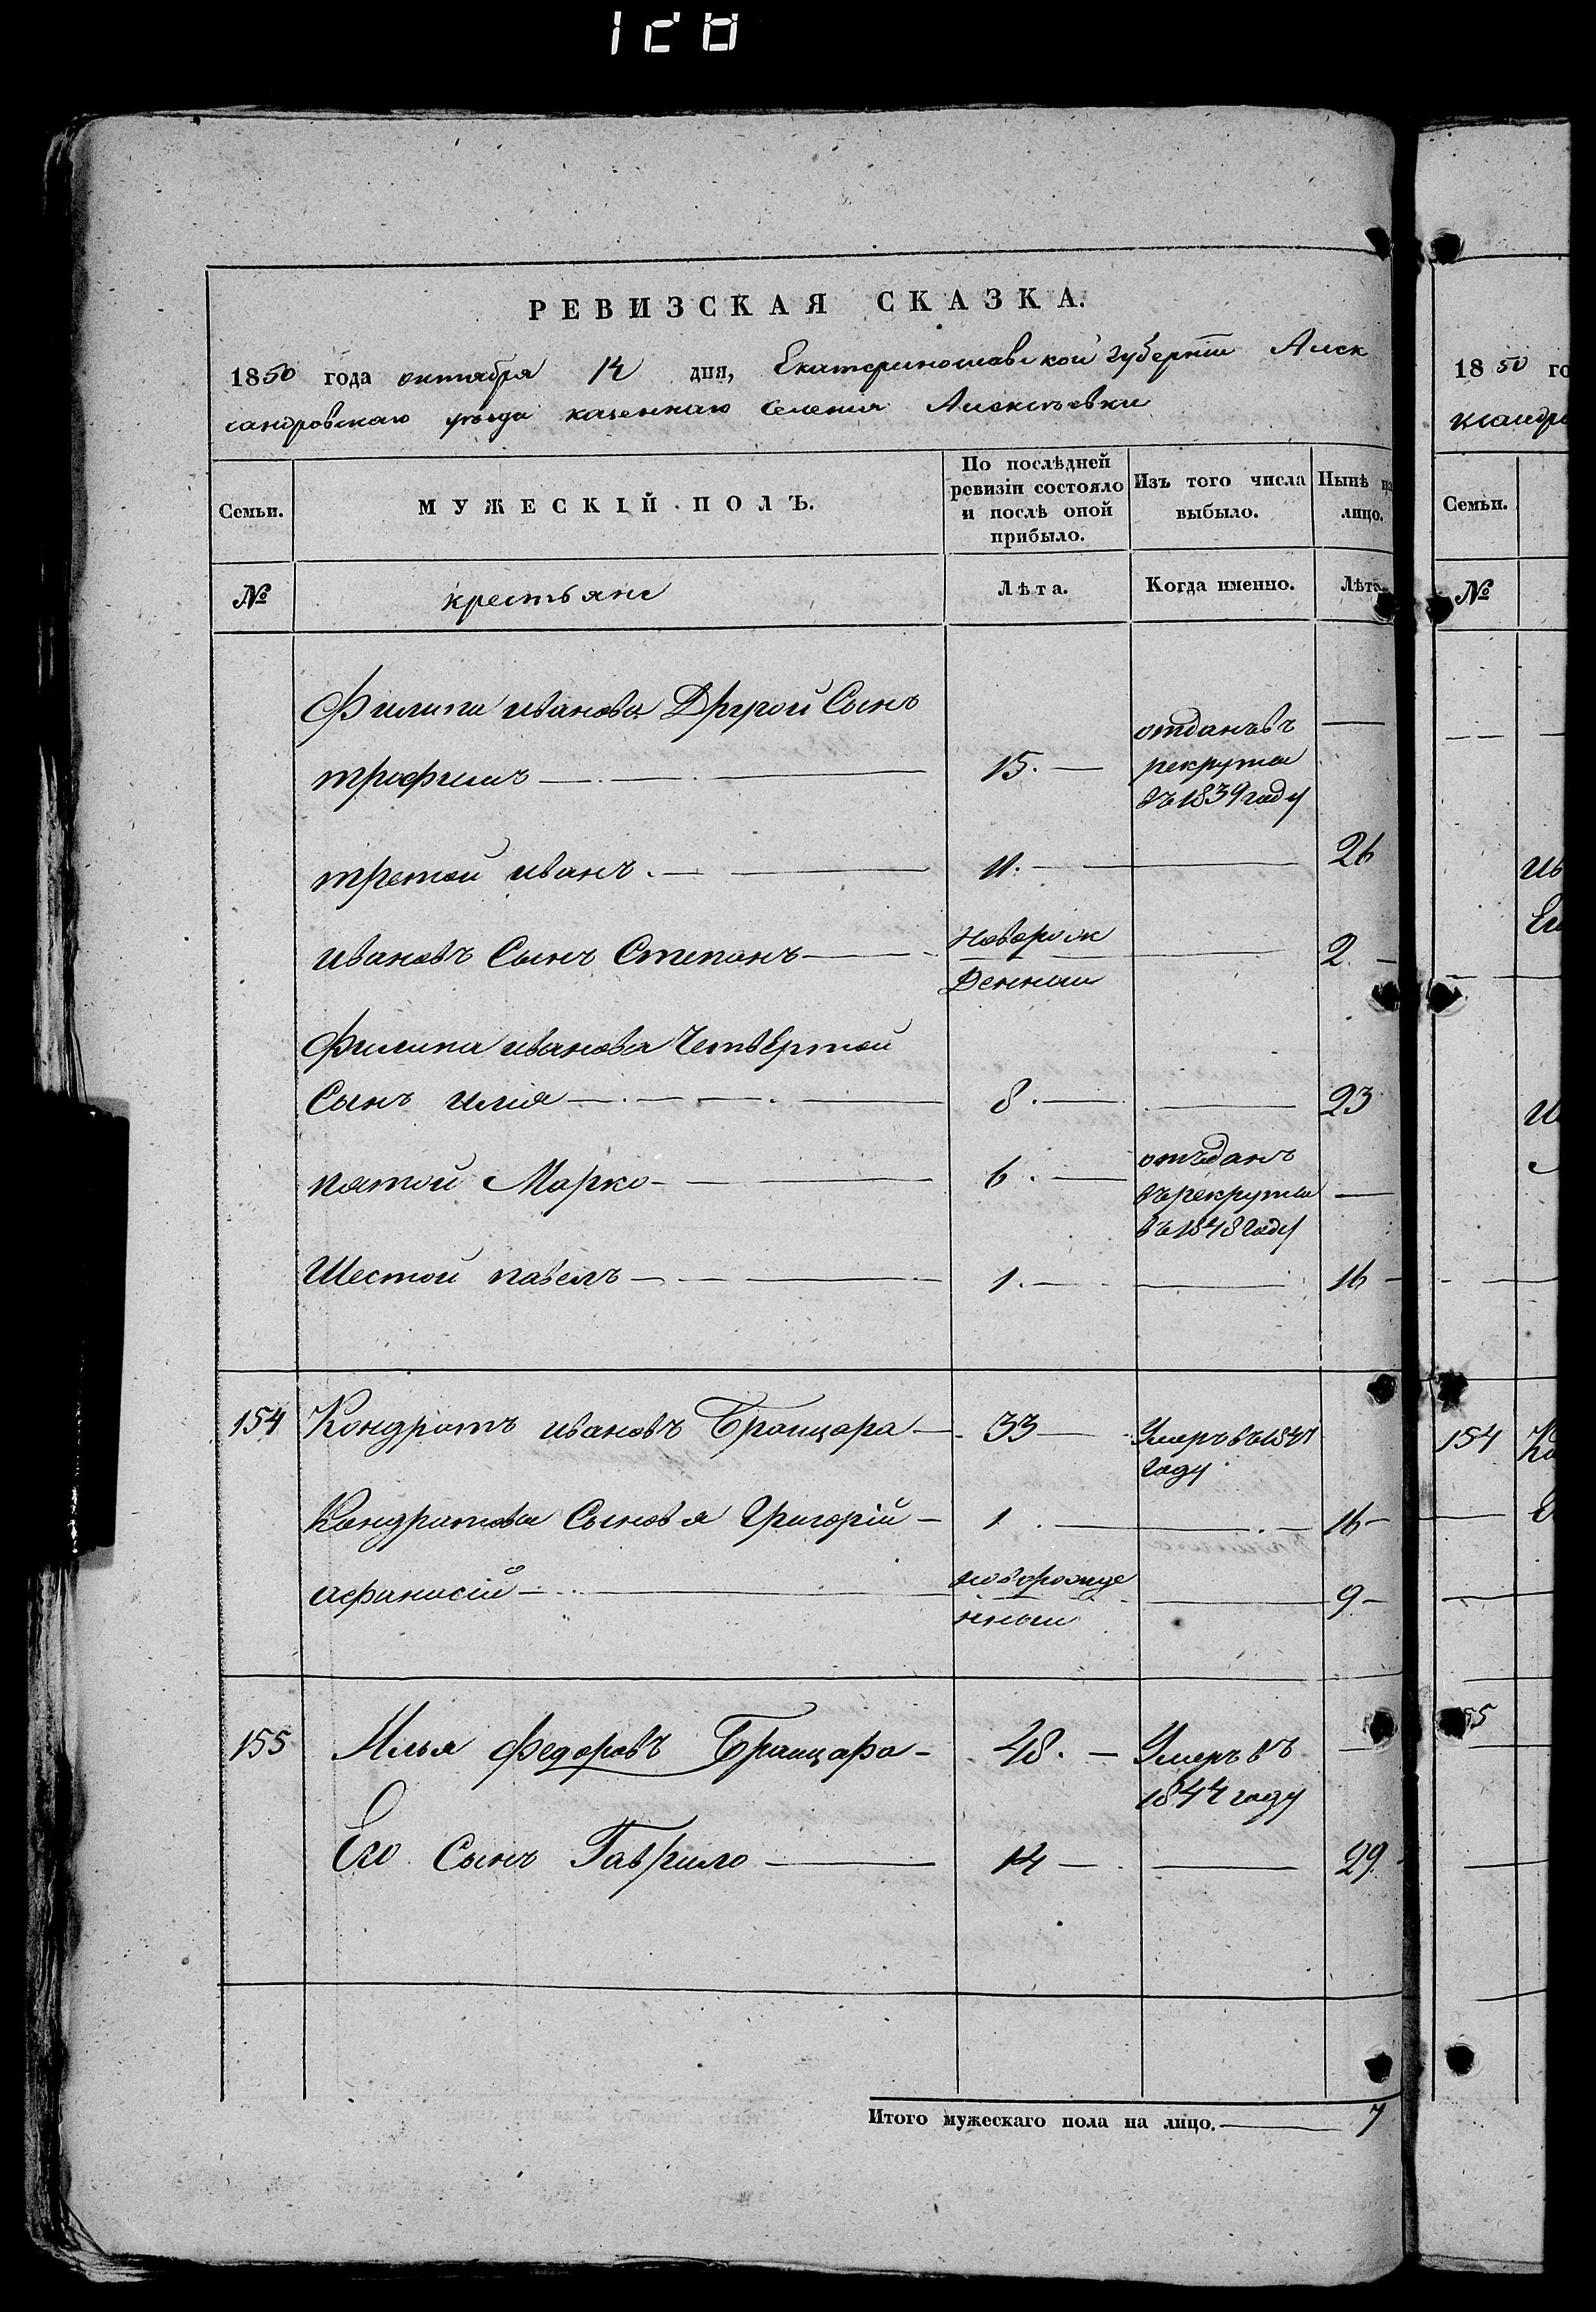 128
РЕВИЗСКАЯ СКАЗКА.
1850 года октября 14 дня, Екатеринославской губерніи Алек
сандровскаго уѣзда казеннаго селенія Алексѣевки
Семьи.
МУЖЕСКІЙ ПОЛЪ.
По послѣдней ревизіи состояло и послѣ оной прибыло.
Изъ того числа выбыло.
Нынѣ на лицо.
№
крестьяне
Лѣта.
Когда именно.
Лѣта.
Филипа иванова Другой Сынъ
трофимъ 15. отданъ въ рекруты въ 1839 году
третой иванъ. 11. 26
ивановъ Сынъ Степанъ Новорож денный 2.
Филипа иванова Четвертой
Сынъ илія 8. 23
пятой Марко 6. отъданъ въ рекруты въ 1848 году
Шестой павелъ 1. 16
154 Кондратъ ивановъ Бранцара 33 Умеръ въ 1841 году
Кондратова Сыновя Григорій 1. 16
афанасій новорожде нный 9
155 Илья Федоровъ Бранцара 48. Умеръ въ 1844 году
Его Сынъ Гаврило 14 29.
Итого мужескаго пола на лицо. 7
1850 го
ксандро
Семьи.
№
154